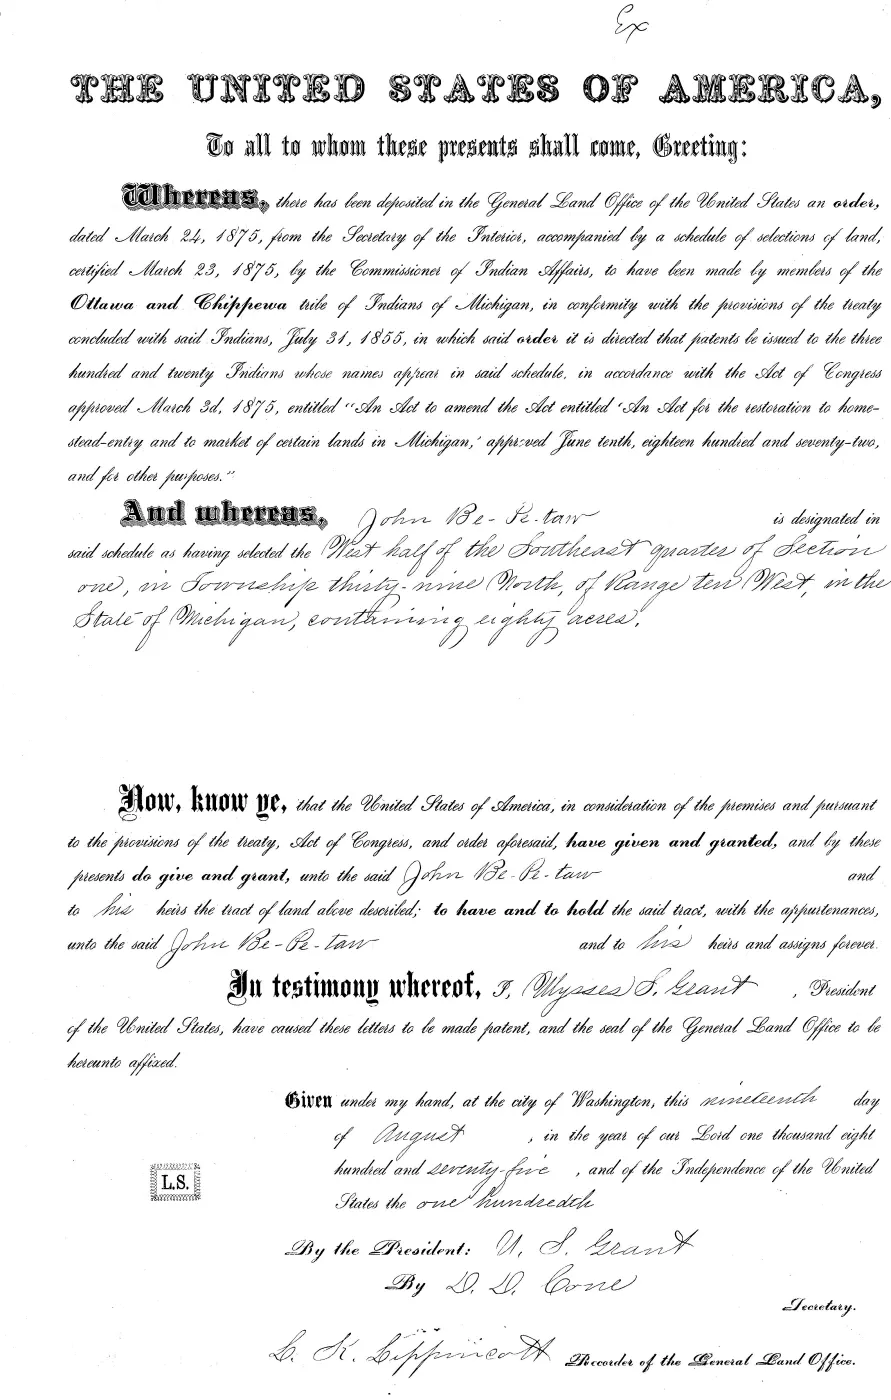 Ex
THE UNITED STATES OF AMERICA,
To all to whom these presents shall come, Greeting:
Whereas, there has been deposited in the General Land Office of the United States an order,
dated March 24, 1875, from the Secretary of the Interior, accompanied by a schedule of selections of land,
certified March 23, 1875, by the Commissioner of Indian Affairs, to have been made by members of the
Ottawa and Chippewa tribe of Indians of Michigan, in conformity with the provisions of the treaty
concluded with said Indians, July 31, 1855, in which said order it is directed that patents be issued to the three
hundred and twenty Indians whose names appear in said schedule, in accordance with the Act of Congress
approved March 3d, 1875, entitled "An Act to amend the Act entitled 'An Act for the restoration to home-
stead-entry and to market of certain lands in Michigan,' approved June tenth, eighteen hundred and seventy-two,
and for other purposes."
And whereas, John Be-Pe-taw is designated in
said schedule as having selected the West half of the Southeast quarter of Section
one, in Township thirty-nine North, of Range ten West, in the
State of Michigan, containing eighty acres.
Now, know ye, that the United States of America, in consideration of the premises and pursuant
to the provisions of the treaty, Act of Congress, and order aforesaid, have given and granted, and by these
presents do give and grant, unto the said John Be-Pe-taw and
to his heirs the tract of land above described; to have and to hold the said tract, with the appurtenances,
unto the said John Be-Pe-taw and to his heirs and assigns forever.
In testimony whereof, I, Ulysses S. Grant, President
of the United States, have caused these letters to be made patent, and the seal of the General Land Office to be
hereunto affixed.
Given under my hand, at the city of Washington, this nineteenth day
of August, in the year of our Lord one thousand eight
hundred and seventy-five, and of the Independence of the United
L.S.
States the one hundredth
By the President: U. S. Grant
By D. D. Cone
Secretary.
L. K. Lippincott Recorder of the General Land Office.